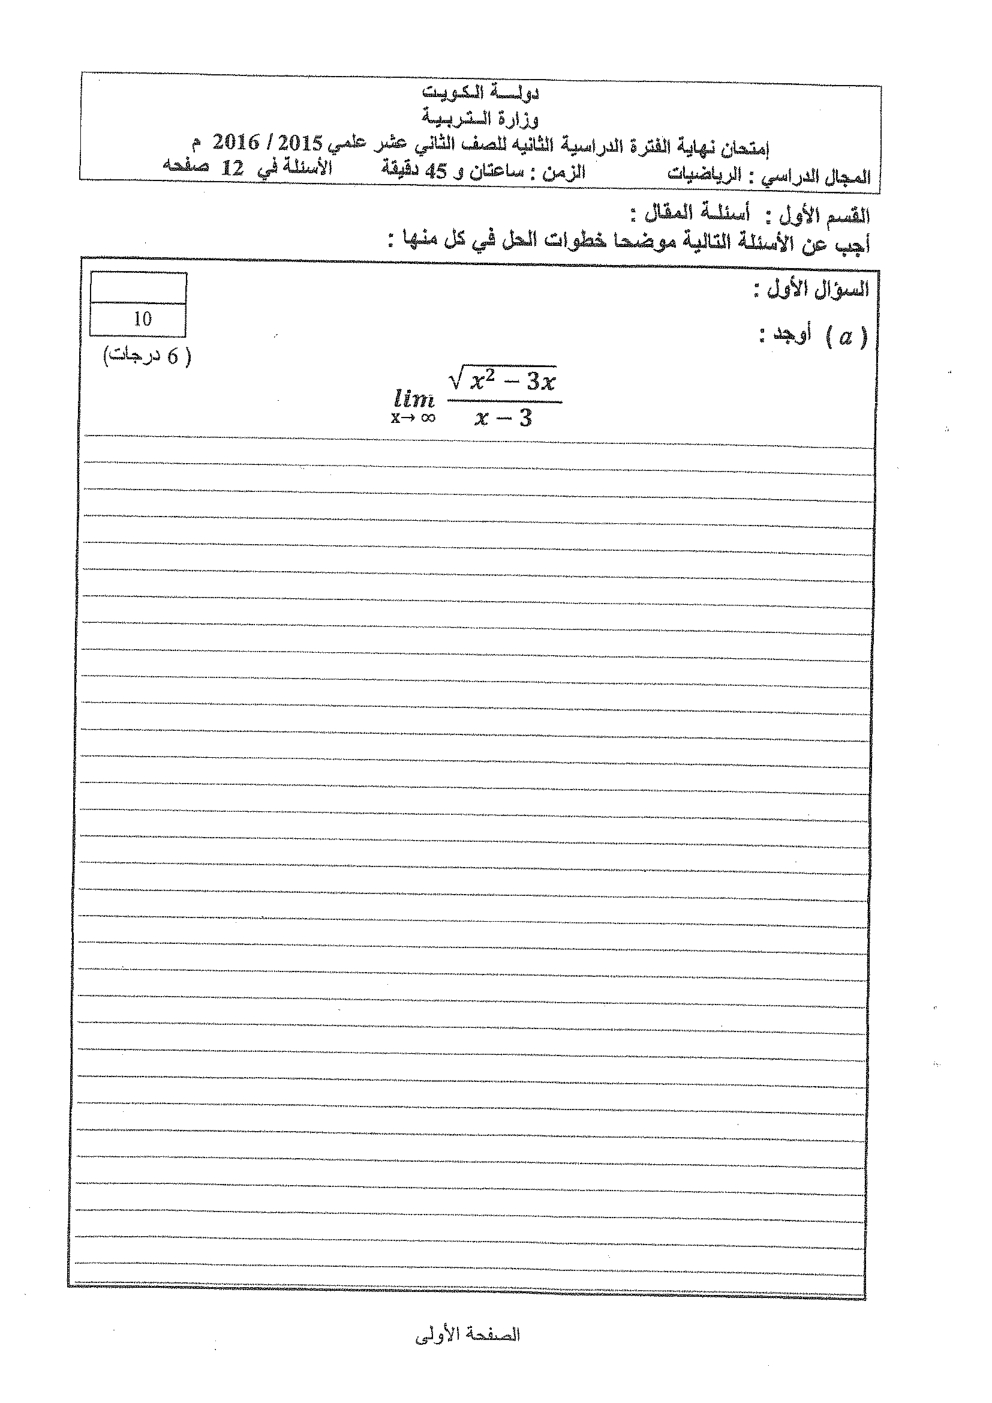 دولـــة الـكـويـت
وزارة الـتـربـيـة
إمتحان نهاية الفترة الدراسية الثانيه للصف الثاني عشر علمي 2015 / 2016 م
المجال الدراسي : الرياضيات الزمن : ساعتان و 45 دقيقة الأسئلة في 12 صفحه
القسم الأول : أسئلـة المقال :
أجب عن الأسئلة التالية موضحا خطوات الحل في كل منها :
السؤال الأول :
10
( a ) أوجد :
( 6 درجات)
lim x→ ∞ √(x² − 3x) / (x − 3)
الصفحة الأولى